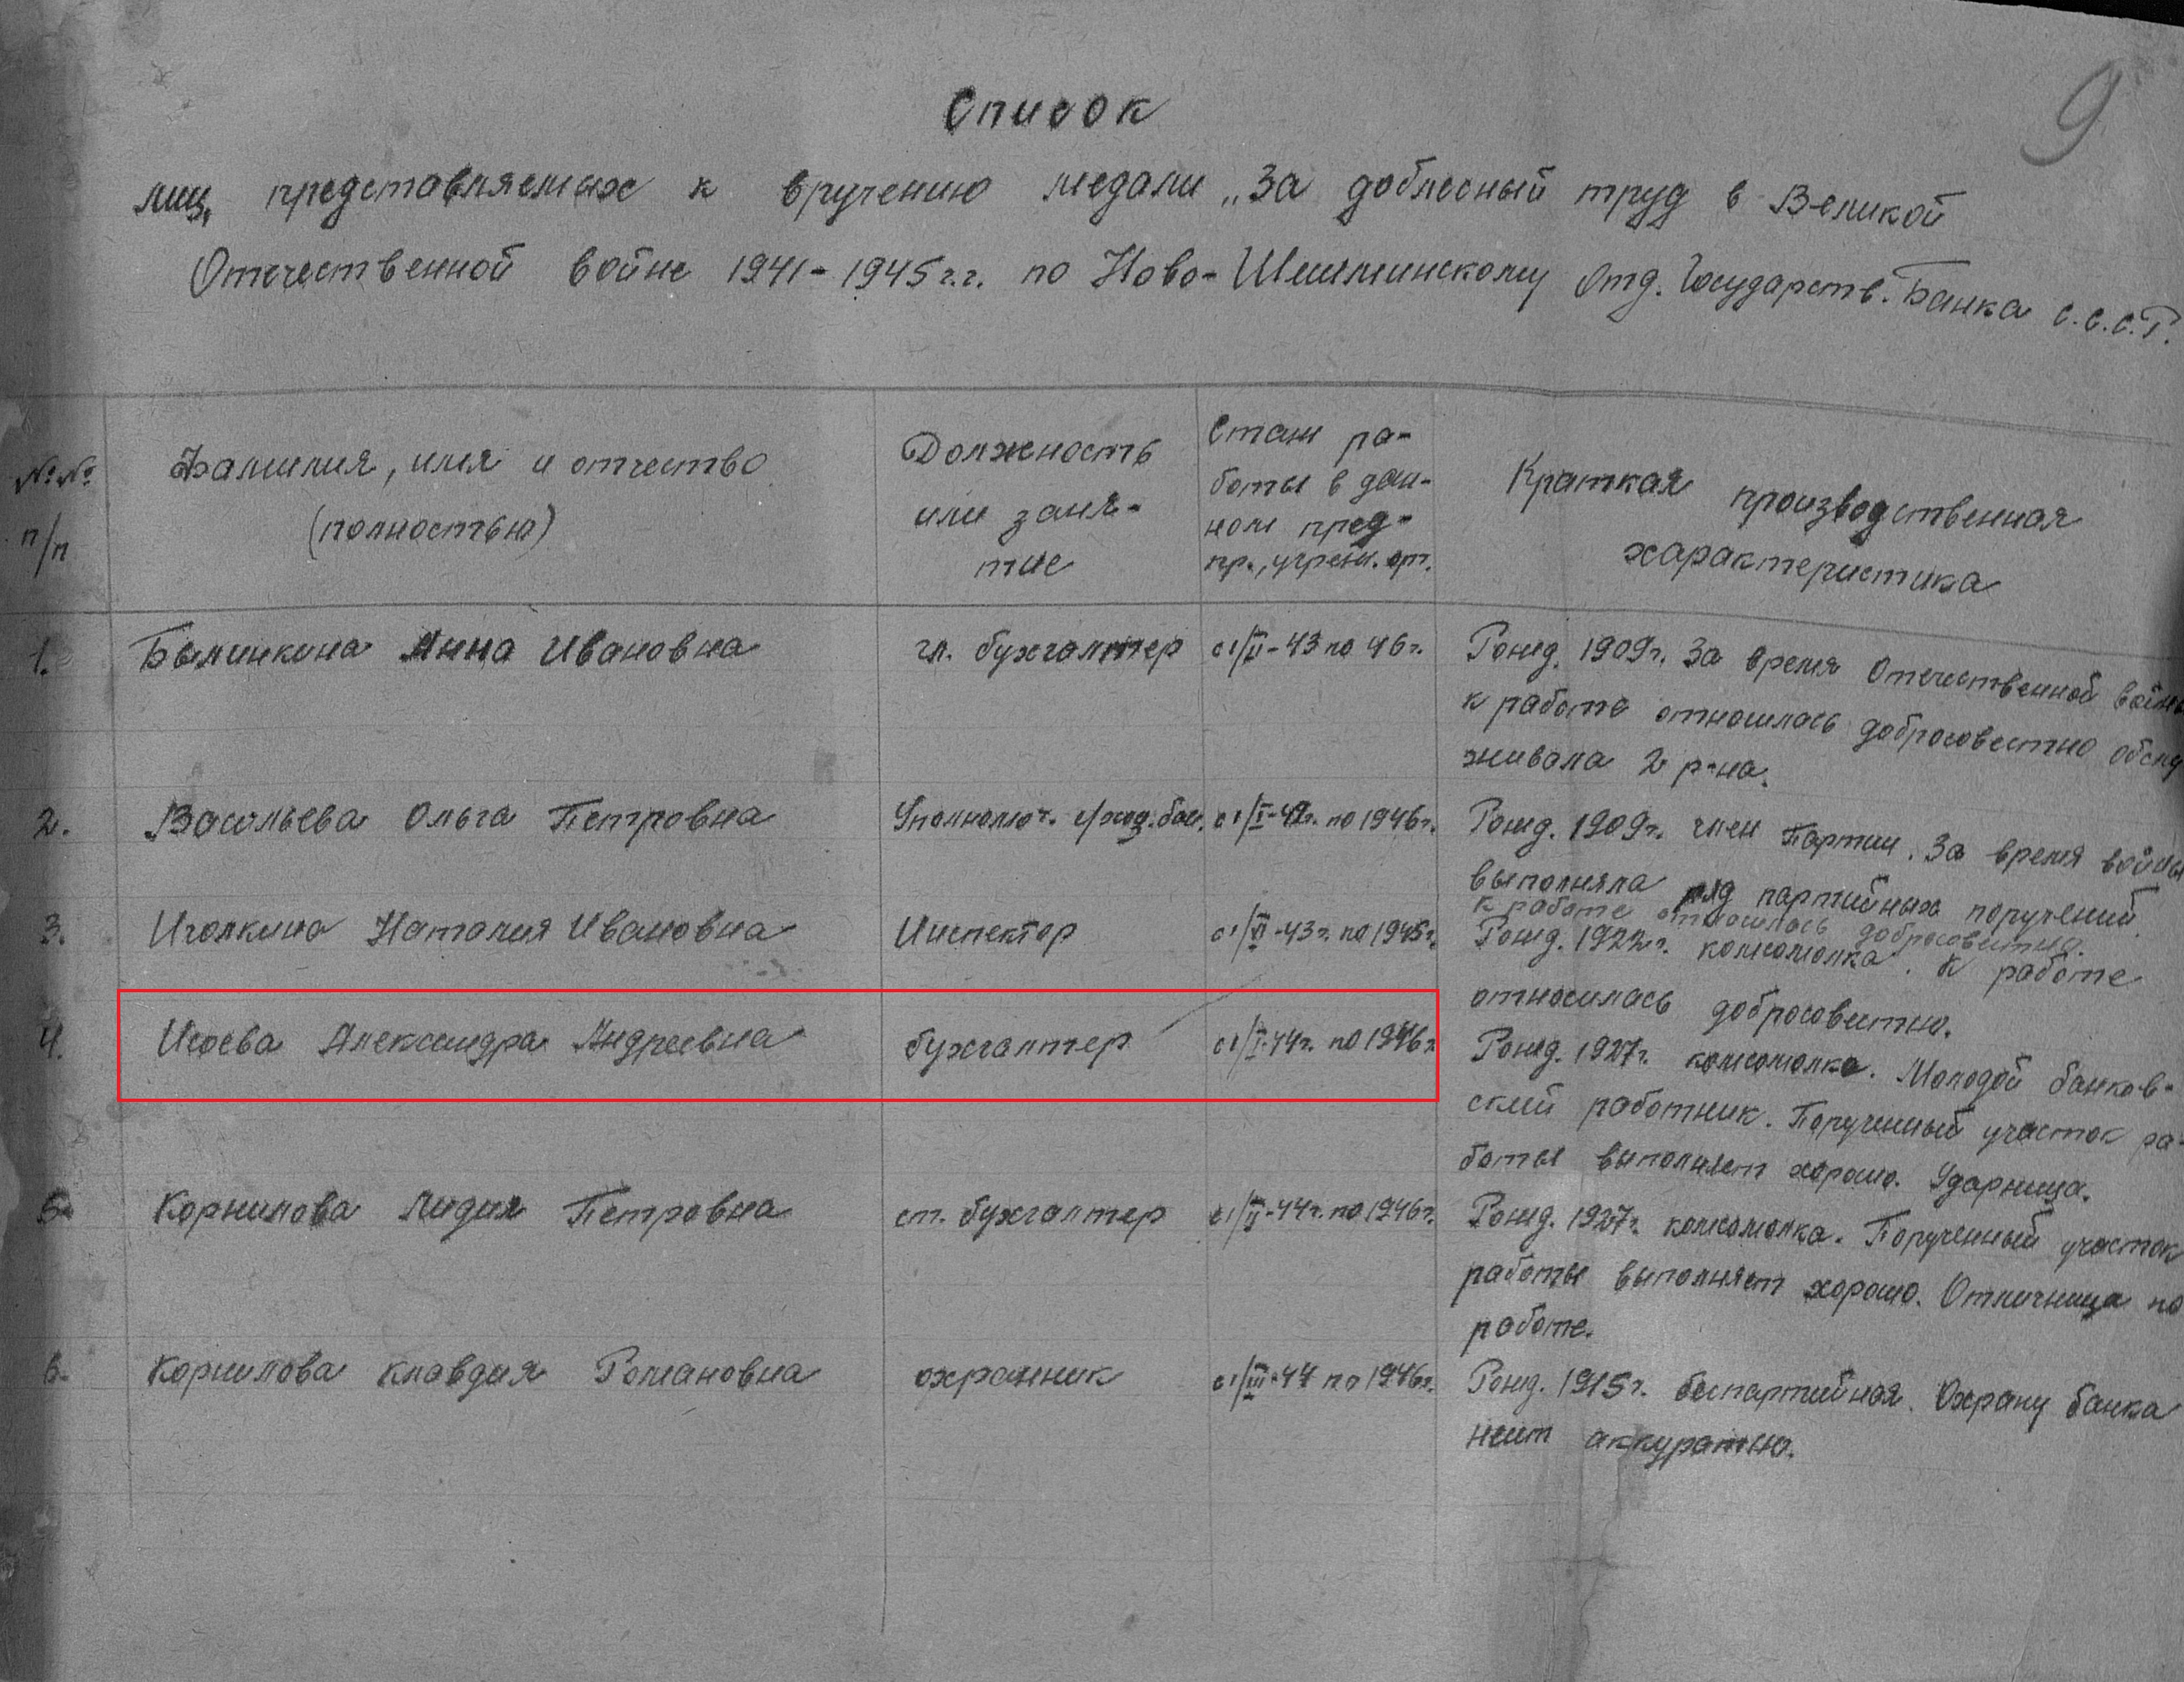 9
Список
лиц, представляемых к вручению медали „За доблесный труд в Великой
Отечественной войне 1941-1945 г.г. по Ново-Шешминскому Отд. Государств. Банка С.С.С.Р.
№№ п/п
Фамилия, имя и отчество
(полностью)
Должность
или заня-
тие
Стаж ра-
боты в дан-
ном пред-
пр., учрежд. орг.
Краткая производственная
характеристика
1. Былинкина Анна Ивановна гл. бухгалтер с 1/II-43 по 46г. Рожд. 1909г. За время Отечественной войны
к работе относилась добросовестно обслу
живала 2 р-на.
2. Васильева Ольга Петровна Уполномоч. с 1/I-42г. по 1946г. Рожд. 1909г. член Партии. За время войны
выполняла ряд партийных поручений.
к работе относилась добросовестно.
3. Иголкина Наталия Ивановна Инспектор с 1/VI-43г. по 1945г. Рожд. 1922г. комсомолка. К работе
относилась добросовестно.
4. Исаева Александра Андреевна бухгалтер с 1/I-44г. по 1946г. Рожд. 1927г. комсомолка. Молодой банков-
ский работник. Порученный участок ра-
боты выполняет хорошо. Ударница.
5. Корнилова Лидия Петровна ст. бухгалтер с 1/II-44г. по 1946г. Рожд. 1927г. комсомолка. Порученный участок
работы выполняет хорошо. Отличница по
работе.
6. Корнилова Клавдия Романовна охранник с 1/III-44 по 1946г. Рожд. 1915г. беспартийная. Охрану банка
несет аккуратно.